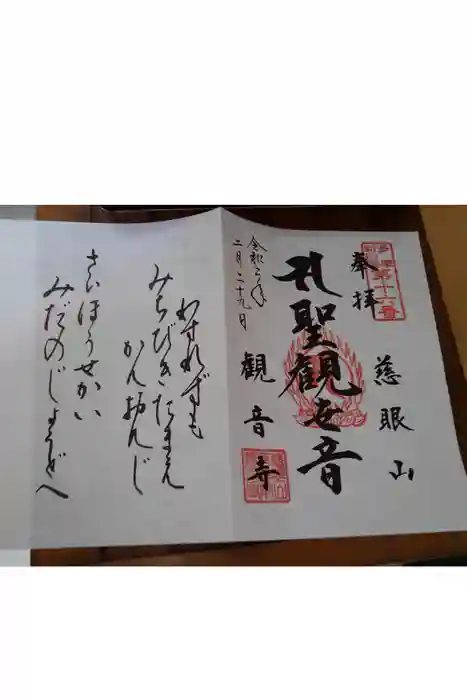 第十六番
奉拝
慈眼山
聖觀世音
觀音寺
令和二年
二月二十九日
わすれずも
みちびきたまえ
かんおんじ
さいほうせかい
みだのじょうどへ